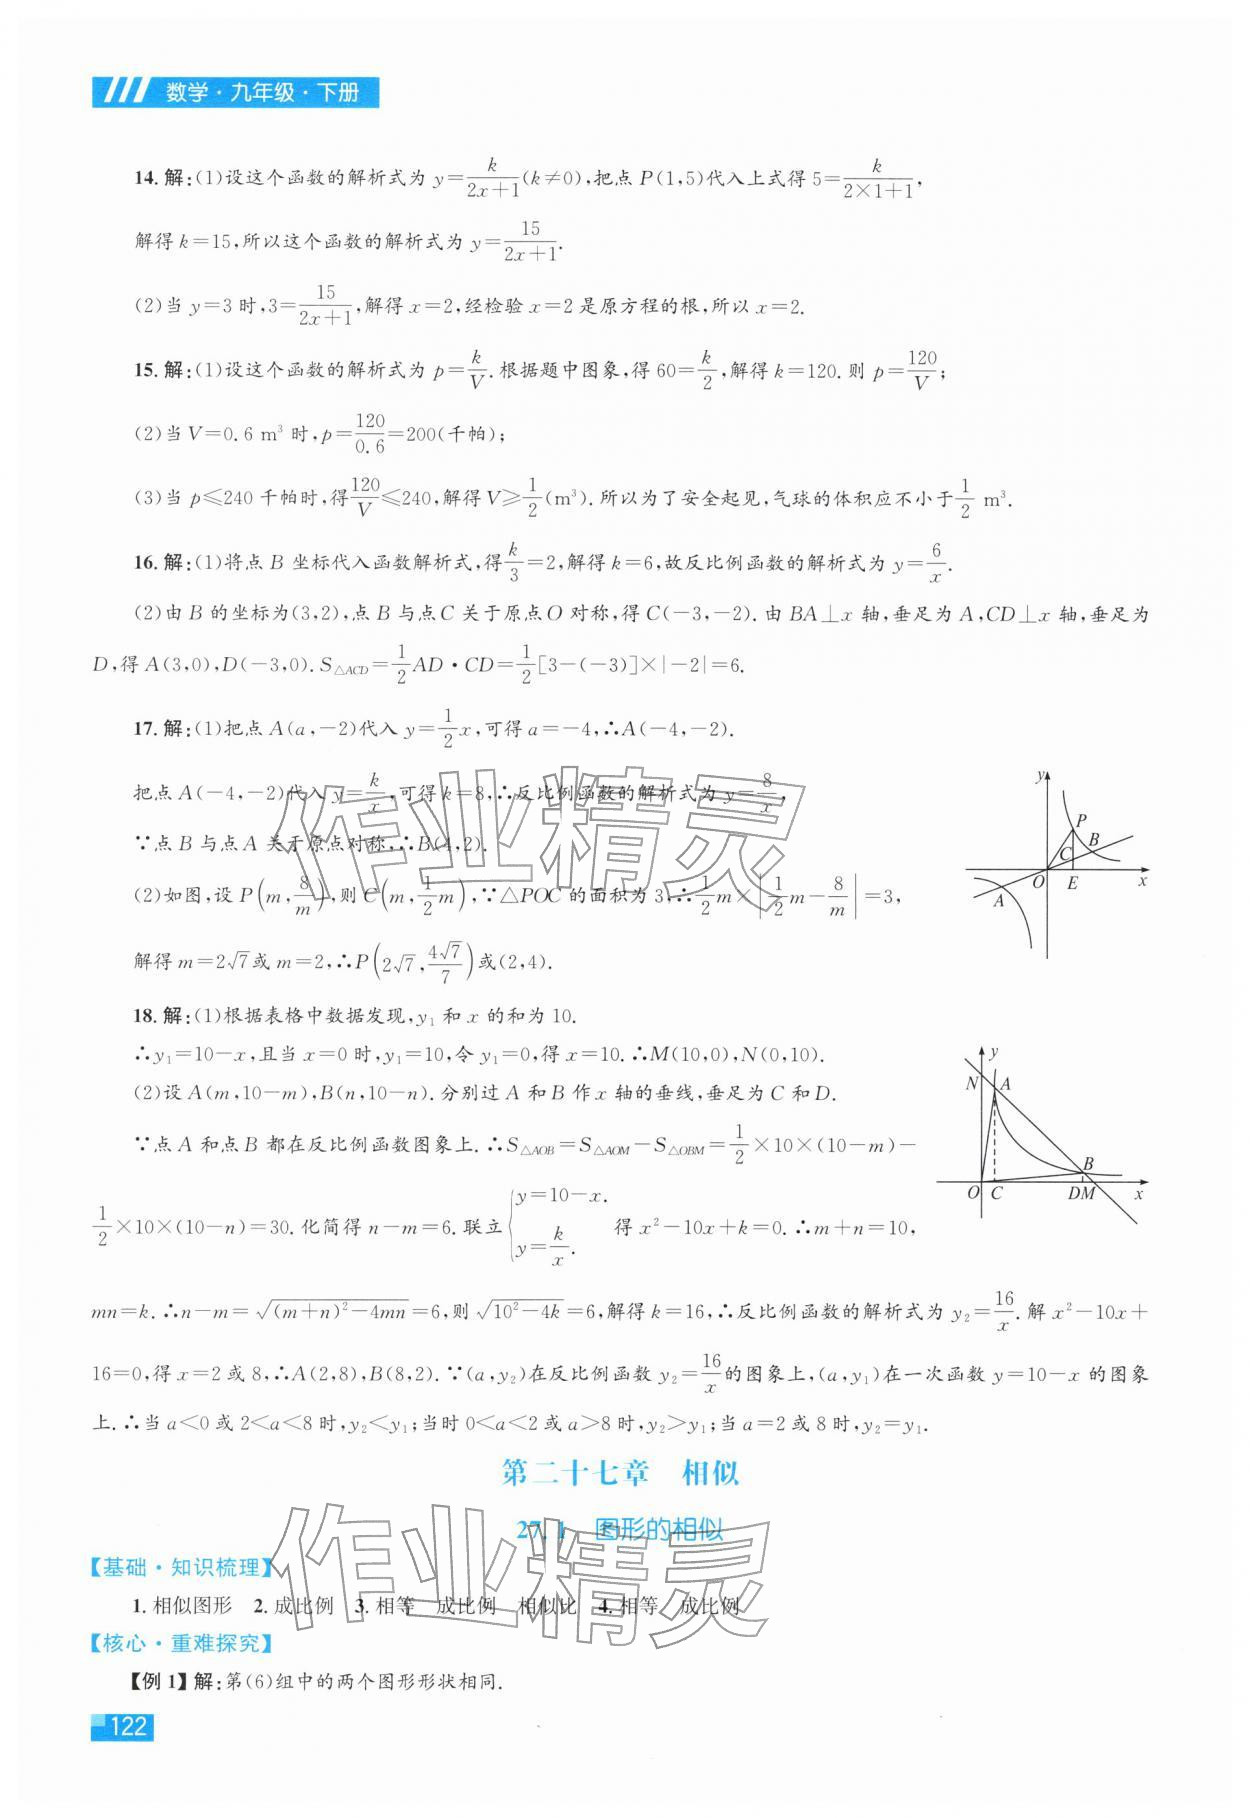 数学·九年级·下册
14.解:(1)设这个函数的解析式为 y=k/(2x+1)(k≠0),把点 P(1,5)代入上式得 5=k/(2×1+1),
解得 k=15,所以这个函数的解析式为 y=15/(2x+1).
(2)当 y=3 时,3=15/(2x+1),解得 x=2,经检验 x=2 是原方程的根,所以 x=2.
15.解:(1)设这个函数的解析式为 p=k/V.根据题中图象,得 60=k/2,解得 k=120.则 p=120/V;
(2)当 V=0.6 m³ 时,p=120/0.6=200(千帕);
(3)当 p≤240 千帕时,得120/V≤240,解得 V≥1/2(m³).所以为了安全起见,气球的体积应不小于1/2 m³.
16.解:(1)将点 B 坐标代入函数解析式,得k/3=2,解得 k=6,故反比例函数的解析式为 y=6/x.
(2)由 B 的坐标为(3,2),点 B 与点 C 关于原点 O 对称,得 C(-3,-2).由 BA⊥x 轴,垂足为 A,CD⊥x 轴,垂足为
D,得 A(3,0),D(-3,0).S△ACD=1/2AD·CD=1/2[3-(-3)]×|-2|=6.
17.解:(1)把点 A(a,-2)代入 y=1/2x,可得 a=-4,∴A(-4,-2).
把点 A(-4,-2)代入 y=k/x,可得 k=8,∴反比例函数的解析式为 y=8/x,
∵点 B 与点 A 关于原点对称,∴B(4,2).
(2)如图,设 P(m,8/m),则 C(m,1/2m),∵△POC 的面积为 3,∴1/2m×|1/2m-8/m|=3,
解得 m=2√7或 m=2,∴P(2√7,4√7/7)或(2,4).
y
P
B
C
O
E
x
A
18.解:(1)根据表格中数据发现,y₁ 和 x 的和为 10.
∴y₁=10-x,且当 x=0 时,y₁=10,令 y₁=0,得 x=10.∴M(10,0),N(0,10).
(2)设 A(m,10-m),B(n,10-n).分别过 A 和 B 作 x 轴的垂线,垂足为 C 和 D.
∵点 A 和点 B 都在反比例函数图象上.∴S△AOB=S△AOM-S△OBM=1/2×10×(10-m)-
1/2×10×(10-n)=30.化简得 n-m=6.联立{y=10-x. y=k/x. 得 x²-10x+k=0.∴m+n=10,
y
N
A
B
O
C
DM
x
mn=k.∴n-m=√((m+n)²-4mn)=6,则√(10²-4k)=6,解得 k=16,∴反比例函数的解析式为 y₂=16/x.解 x²-10x+
16=0,得 x=2 或 8,∴A(2,8),B(8,2).∵(a,y₂)在反比例函数 y₂=16/x的图象上,(a,y₁)在一次函数 y=10-x 的图象
上.∴当 a<0 或 2<a<8 时,y₂<y₁;当时 0<a<2 或 a>8 时,y₂>y₁;当 a=2 或 8 时,y₂=y₁.
第二十七章 相似
27.1 图形的相似
【基础·知识梳理】
1.相似图形 2.成比例 3.相等 成比例 相似比 4.相等 成比例
【核心·重难探究】
【例1】解:第(6)组中的两个图形形状相同.
122
作业精灵
作业精灵